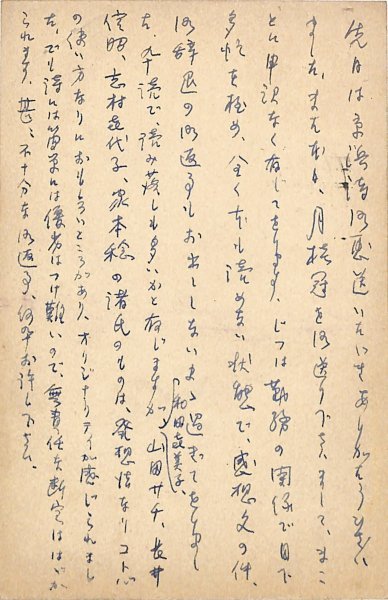 先日は京浜詩御恵送いただきありがとうござい
ました。またこの度、月桂冠を御送り下さいまして、まこ
とに申訳なく存じております。じつは勤務の関係で目下
多忙を極め、全く本も読めない状態で、感想文の件、
御辞退の御返事もお出ししないまま過ぎてをりまし
た。九十読で、読み落しも多いかと存じますが、和田喜美子、山田サチ、長井
信昭、志村喜代子、家本稔の諸氏のものは、発想法なりコトバ
の使い方なりにおもしろいところがあり、オリジナリティが感じられまし
た。でも詩には簡単には優劣はつけ難いので、無責任な断定ははばか
られます。甚だ不十分な御返事、何卒お許し下さい。